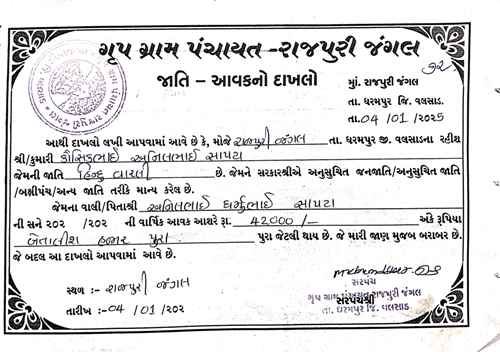 ગૃપ ગ્રામ પંચાયત - રાજપુરી જંગલ
જાતિ - આવકનો દાખલો
મું. રાજપુરી જંગલ
તા. ધરમપુર જિ. વલસાડ.
તા. 04 / 01 / ૨૦૨5
આથી દાખલો લખી આપવામાં આવે છે કે, મોજે રાજપુરી જંગલ તા. ધરમપુર જી. વલસાડના રહીશ
શ્રી/કુમારી કૌશિકભાઈ અનિલભાઈ સાપટા
જેમની જાતિ હિન્દુ વારલી છે. જેમને સરકારશ્રીએ અનુસુચિત જનજાતિ/અનુસુચિત જાતિ
/બક્ષીપંચ/અન્ય જાતિ તરીકે માન્ય કરેલ છે.
જેમના વાલી/પિતાશ્રી અનિલભાઈ ધર્મુભાઈ સાપટા
ની સને ૨૦૨ /૨૦૨ ની વાર્ષિક આવક આશરે રૂા. 42000 /- અંકે રૂપિયા
બેતાલીશ હજાર પુરા પુરા જેટલી થાય છે. જે મારી જાણ મુજબ બરાબર છે.
જે બદલ આ દાખલો આપવામાં આવે છે.
સ્થળ :- રાજપુરી જંગલ
તારીખ :- 04 / 01 / ૨૦૨
સરપંચ
ગૃપ ગ્રામ પંચાયત રાજપુરી જંગલ
સરપંચશ્રી
તા. ધરમપુર જિ. વલસાડ